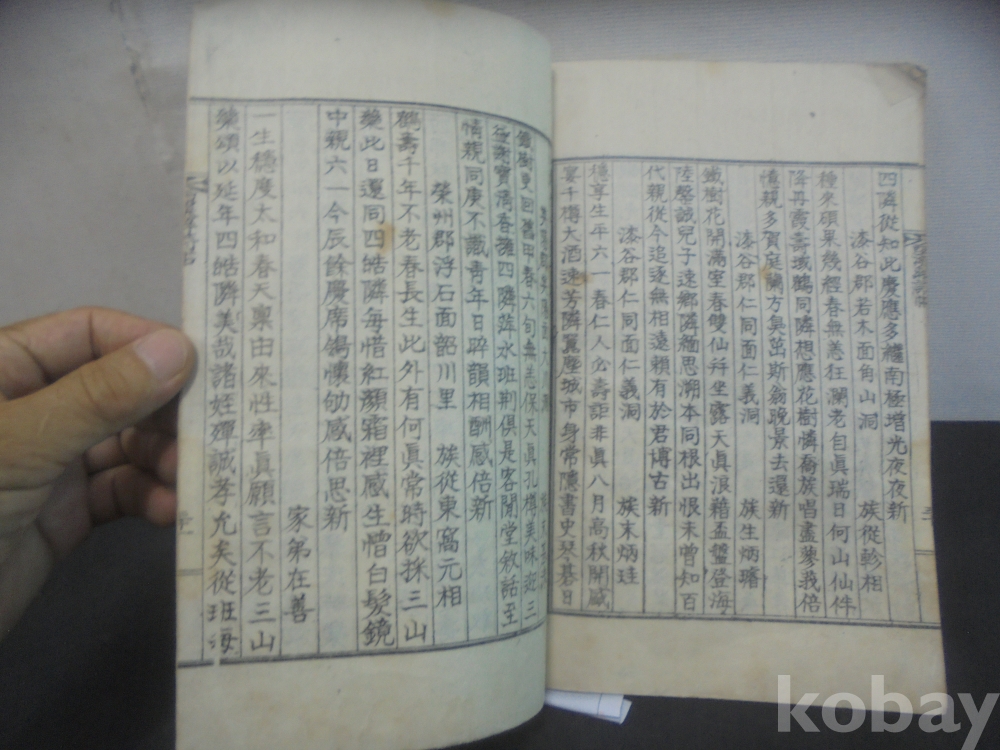 四隣從知此慶應多纏南極增光夜夜新
漆谷郡若木面角山洞 族從軫相
種來碩果幾經春無恙狂瀾老自眞瑞日何山仙侔
降丹霞壽域鶴同隣想應花樹憐喬族唱盡蓼莪倍
憶親多賀庭蘭方吳茁斯翁晩景去還新
漆谷郡仁同面仁義洞 族生炳璿
鐵樹花開滿室春雙仙幷坐露天眞浪藉盃盤登海
陸磬誠兒子速鄕隣緬思溯本同根出恨未曾知百
代親從今追逐無相遠賴有於君博古新
漆谷郡仁同面仁義洞 族末炳珪
穩享生平六一春仁人必壽詎非眞八月高秋開感
宴千樽大酒速芳隣囂塵城市身常隱書史琴碁日
鐵樹更回舊甲春六旬無恙保天眞孔樽美味班三
徑謝寶淸香擁四隣萍水班荆俱是客開堂敘話至
情親同庚不識靑年日碎韻相酬感倍新
榮州郡浮石面韶川里 族從東窩元相
鶴壽千年不老春長生此外有何眞常時欲採三山
藥此日還同四皓隣每惜紅顔霜裡感生憎白髮鏡
中親六一今辰餘慶席鴒懷劬感倍思新
家弟在善
一生穩度太和春天稟由來性率眞願言不老三山
藥頌以延年四皓隣美哉諸姪殫誠孝允矣從班每
kobay